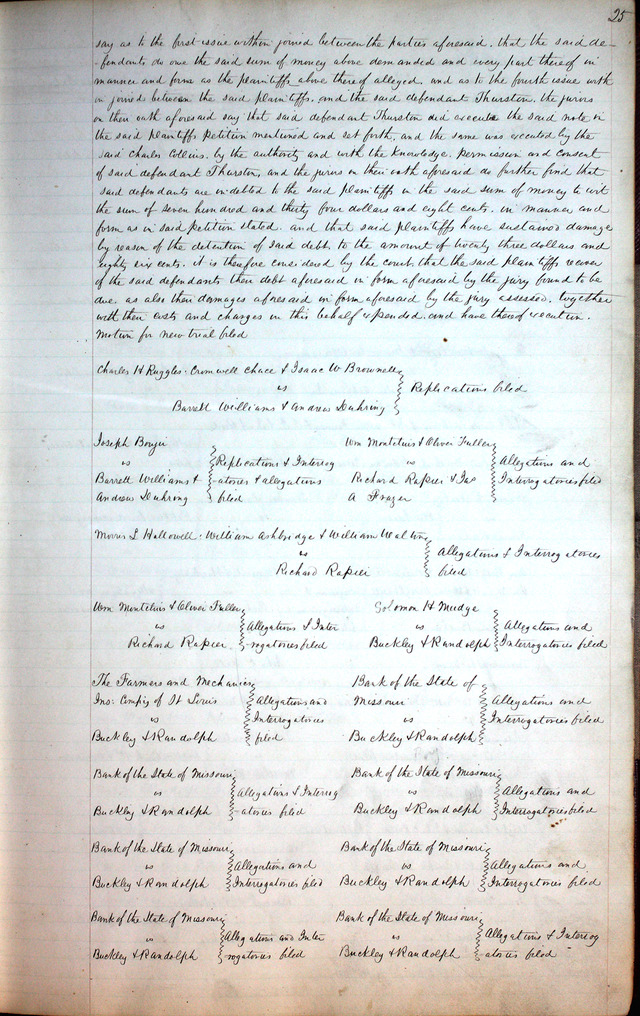 25
say as to the first issue within joined between the parties aforesaid. that the said de-
-fendants do owe the said sum of money above demanded and every part thereof in
manner and form as the plaintiffs above thereof alleged and as to the fourth issue with
in joined between the said plaintiffs, and the said defendant Thurston, the jurors
on their oath aforesaid say that said defendant Thurston did execute the said note in
the said plaintiffs petition mentioned and set forth, and the same was executed by the
said Charles Collins, by the authority and with the knowledge, permission and consent
of said defendant Thurston, and the jurors on their oath aforesaid do further find that
said defendants are indebted to the said plaintiffs in the said sum of money to wit
the sum of seven hundred and thirty four dollars and eight cents. in manner and
form as in said petition stated. and that said plaintiffs have sustained damage
by reason of the detention of said debt to the amount of twenty three dollars and
eighty six cents. it is therefore considered by the court that the said plaintiffs recover
of the said defendants their debt aforesaid in form aforesaid by the jury found to be
due. as also their damages aforesaid in form aforesaid by the jury assessed. together
with their costs and charges in this behalf expended. and have thereof execution.
Motion for new trial filed
Charles H Ruggles. Cromwell Chace & Isaac W Brownell
vs
Barrett Williams & Andrew Duhring
Replications filed
Joseph Bouju
vs
Barrett Williams &
Andrew Duhrong
Replications & Interog
-atories & allegations
filed
Wm Montelius & Oliver Fuller
vs
Richard Rapier & Jas
A Frazer
Allegations and
Interrogatories filed
Morris L Hallowell. William Ashbridge & William Walton
vs
Richard Rapier
Allegations & Interrogatories
filed
Wm Montelius & Oliver Fuller
vs
Richard Rapier
Allegations & Inter
-rogatories filed
Solomon H Mudge
vs
Buckley & Randolph
Allegations and
Interrogatories filed
The Farmers and Mechanics
Ins: Compy of St Louis
vs
Buckley & Randolph
Allegations and
Interrogatories
filed
Bank of the State of
Missouri
vs
Buckley & Randolph
Allegations and
Interrogatories filed
Bank of the State of Missouri
vs
Buckley & Randolph
Allegations & Interrog
-atories filed
Bank of the State of Missouri
vs
Buckley & Randolph
Allegations and
Interrogatories filed
Bank of the State of Missouri
vs
Buckley & Randolph
Allegations and
Interrogatories filed
Bank of the State of Missouri
vs
Buckley & Randolph
Allegations and
Interrogatories filed
Bank of the State of Missouri
vs
Buckley & Randolph
Allegations and Inter
rogatories filed
Bank of the State of Missouri
vs
Buckley & Randolph
Allegations & Interrog
atories filed